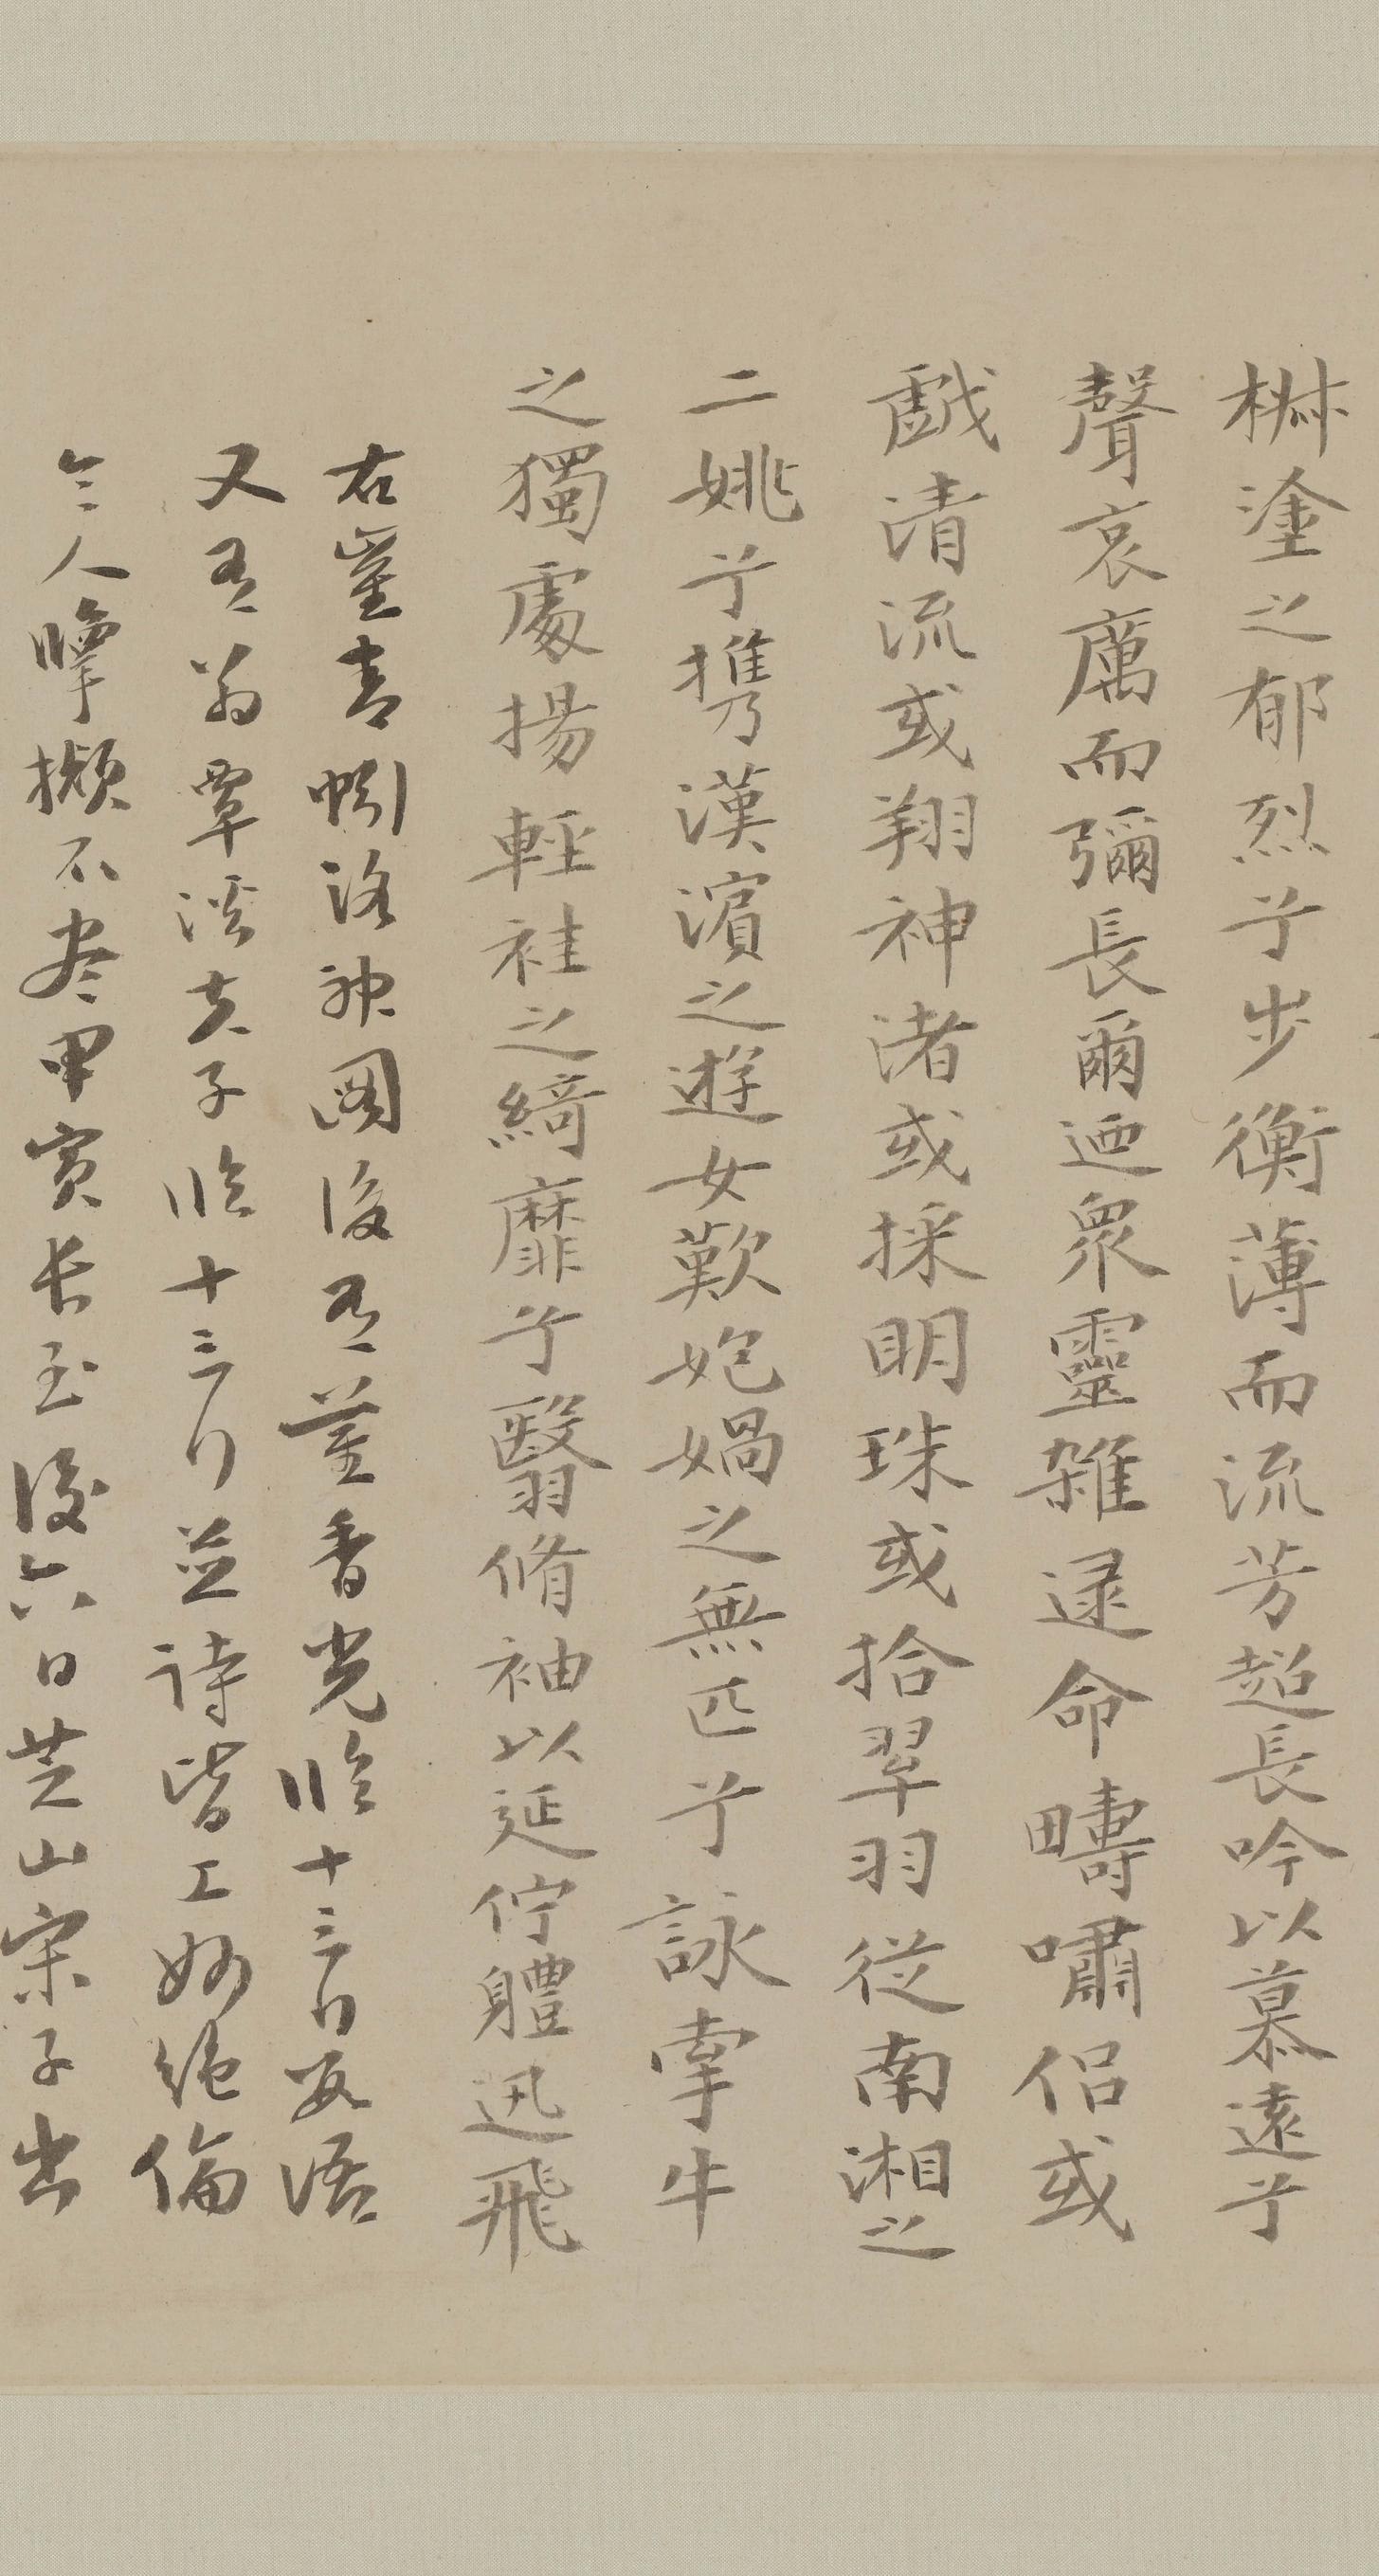 椒塗之郁烈兮步衡薄而流芳超長吟以慕遠兮
聲哀厲而彌長爾迺眾靈雜遝命疇嘯侶或
戲清流或翔神渚或採明珠或拾翠羽從南湘之
二姚兮攜漢濱之遊女歎媧之無匹兮詠牽牛
之獨處揚輕袿之綺靡兮翳脩袖以延佇體迅飛
右崔青蚓洛神圖後有董香光臨十三行數語
又有翁覃溪夫子臨十三行並詩皆工妙絕倫
令人擬不盡甲寅長至後六日芝山宋子